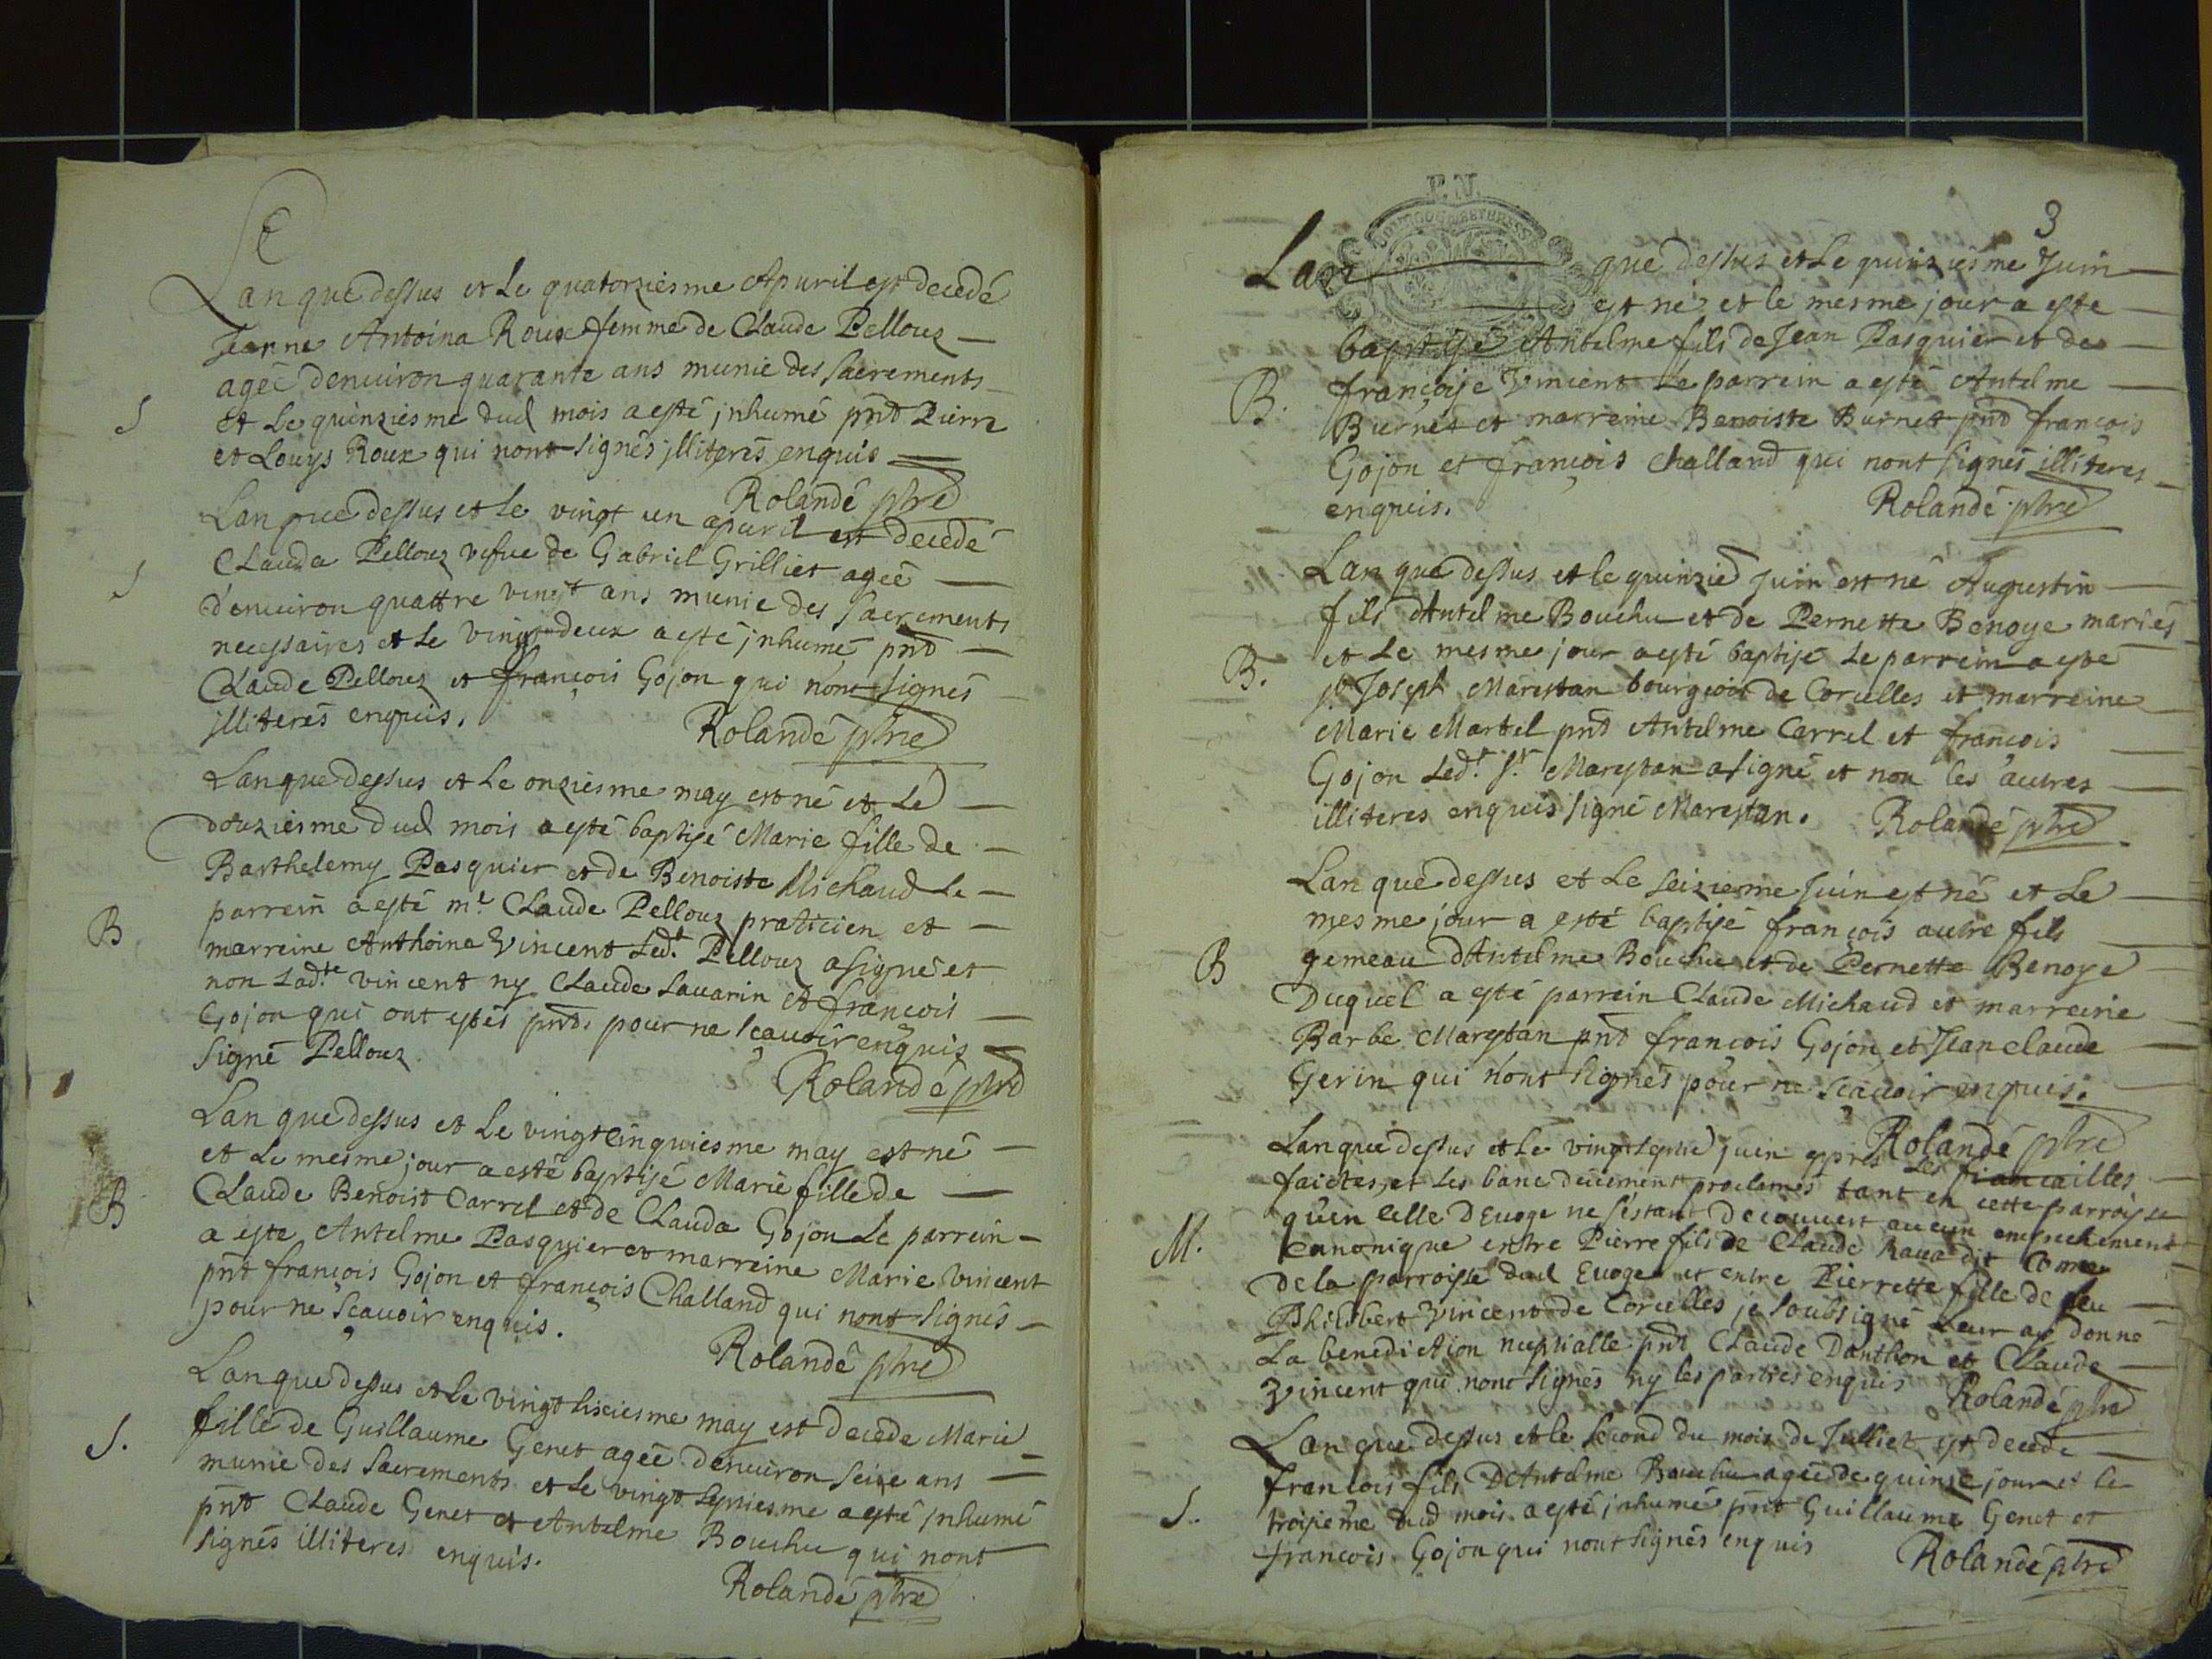 Lan que dessus et Le quatorziesme Apuril est decedé
Jeanne Antoina Roux femme de Claude Pellouz
agée denuiron quarante ans munie des sacrements
S
et Le quinziesme dud mois a esté jnhumé pnt Pierre
et Louys Roux qui nont signés jlliterés enquis
Rolandé pbre
Lan que dessus et Le vingt un apuril est decedé
S
Clauda Pellouz vefue de Gabriel Grilliet agée
d'enuiron quattre vingt ans munie des sacrements
necessaires et Le vingt deux a esté jnhumé pnt
Claude Pellouz et françois Gojon qui nont signés
jlliterés enquis.
Rolandé pbre
Lan que dessus et Le onziesme may est né et Le
douziesme dud mois a esté baptisé Marie fille de
Barthelemy Pasquier et de Benoiste Michaud Le
parrein a esté mr. Claude Pellouz praticien et
B
marreine Anthoina Vincent Led.t Pellouz a signé et
non Lad.te vincent ny Claude Sauarin et françois
Gojon qui ont estés pnts. pour ne sçauoir enquis
signé Pellouz.
Rolandé pbre
Lan que dessus et Le vingt cinquiesme may est né
et Le mesme jour a esté baptisé Marie fille de
B
Claude Benoist Carrel et de Clauda Gojon Le parrein
a este Antelme Pasquier et marreine Marie Vincent
pnt françois Gojon et françois Challand qui nont signés
pour ne sçauoir enquis.
Rolandé pbre
Lan que dessus et Le vingt sixiesme may est decede Marie
S.
fille de Guillaume Genet agée denuiron seize ans
munie des sacrements et Le vingt septiesme a esté jnhumé
pnt Claude Genet et Antelme Bouchu qui nont
signés illiteres enquis.
Rolandé pbre
F.N.
3
Lan que dessus et Le quinziesme Juin
est né et le mesme jour a este
baptisé Antelme fils de Jean Pasquier et de
B.
françoise Vincent Le parrein a esté Antelme
Burnet et marreine Benoiste Burnet pnt françois
Gojon et françois Challand qui nont signés illiteres
enquis.
Rolandé pbre
Lan que dessus et le quinzie Juin est né Augustin
fils d'Antelme Bouchu et de Pernette Benoye mariés
B.
et Le mesme jour a esté baptisé Le parrein a esté
sr. Joseph Marestan bourgeois de Corcelles et marreine
Marie Martel pnt Antelme Carrel et françois
Gojon Led.t s.r Marestan a signé et non les autres
illiteres enquis signé Marestan.
Rolandé pbre
Lan que dessus et Le seizieme Juin est né et Le
mesme jour a esté baptisé françois autre fils
B
gemeau d'Antelme Bouchu et de Pernette Benoye
Duquel a esté parrein Claude Michaud et marreine
Barbe Marestan pnt françois Gojon et Jean claude
Gerin qui nont signés pour ne sçauoir enquis.
Rolandé pbre
Lan que dessus et Le vingt septie juin appres Les fiancailles
faictes, et Les banc deuement proclamés tant en cette parroisse
qu'en celle D'Euoge ne s'estant decouuert aucun empeschement
M.
canonique entre Pierre fils de Claude Raua dit Come
de la parroisse dud Euoge et entre Pierrette fille de feu
Philibert Vincent de Corcelles je soubsigné Leur ay donné
La benediction nuptialle pnt Claude Danthon et Claude
Vincent qui nont signés ny les parties enquis
Rolandé pbre
Lan que dessus et le second du mois de Julliet est decede
françois fils D'Antelme Bouchu agée de quinze jour et le
S.
troisieme dud mois a esté jnhumé pnt Guillaume Genet et
françois Gojon qui nont signés enquis
Rolandé pbre